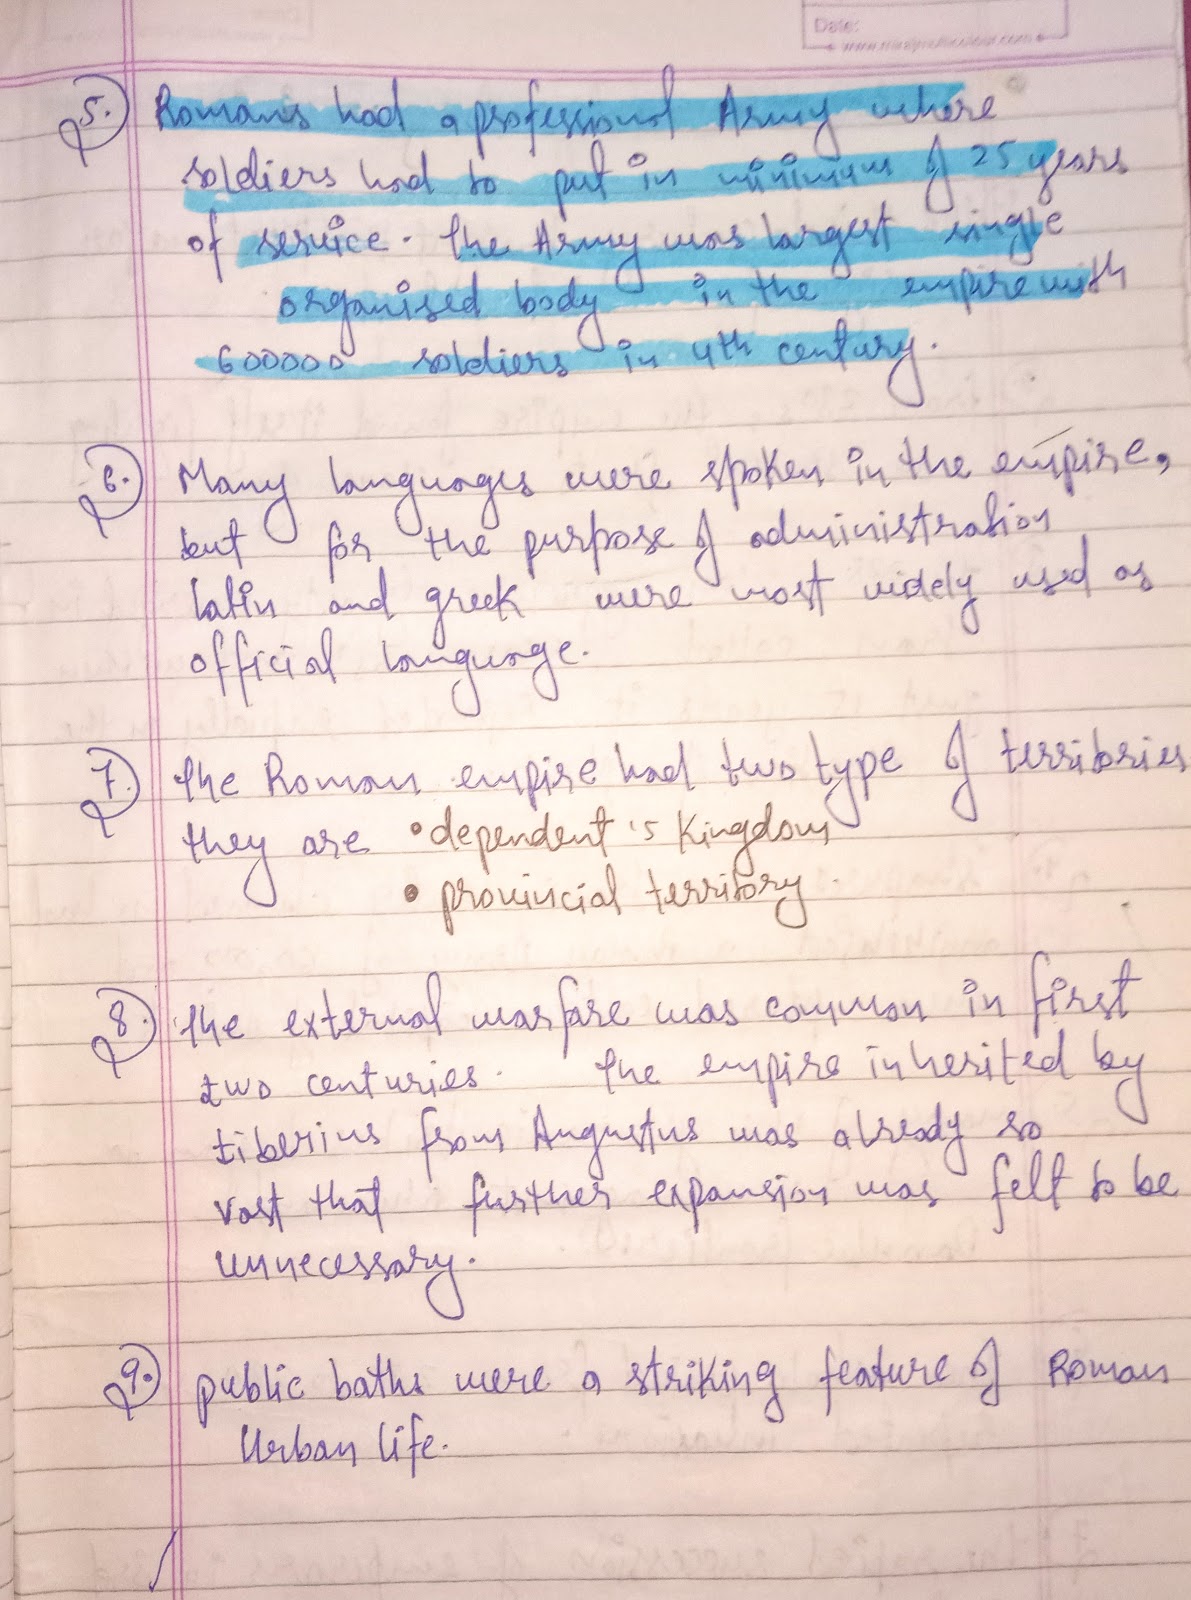 Date:
www.mirajmulticolour.com
5. Romans had a professional Army where
soldiers had to put in minimum of 25 years
of service. the Army was largest single
organised body in the empire with
600000 soldiers in 4th century.
6. Many languages were spoken in the empire,
but for the purpose of administration
latin and greek were most widely used as
official language.
7. the Roman empire had two type of territories
they are • dependent's Kingdom
• provincial territory.
8. the external warfare was common in first
two centuries. the empire inherited by
tiberius from Augustus was already so
vast that further expansion was felt to be
unnecessary.
9. public baths were a striking feature of Roman
Urban life.